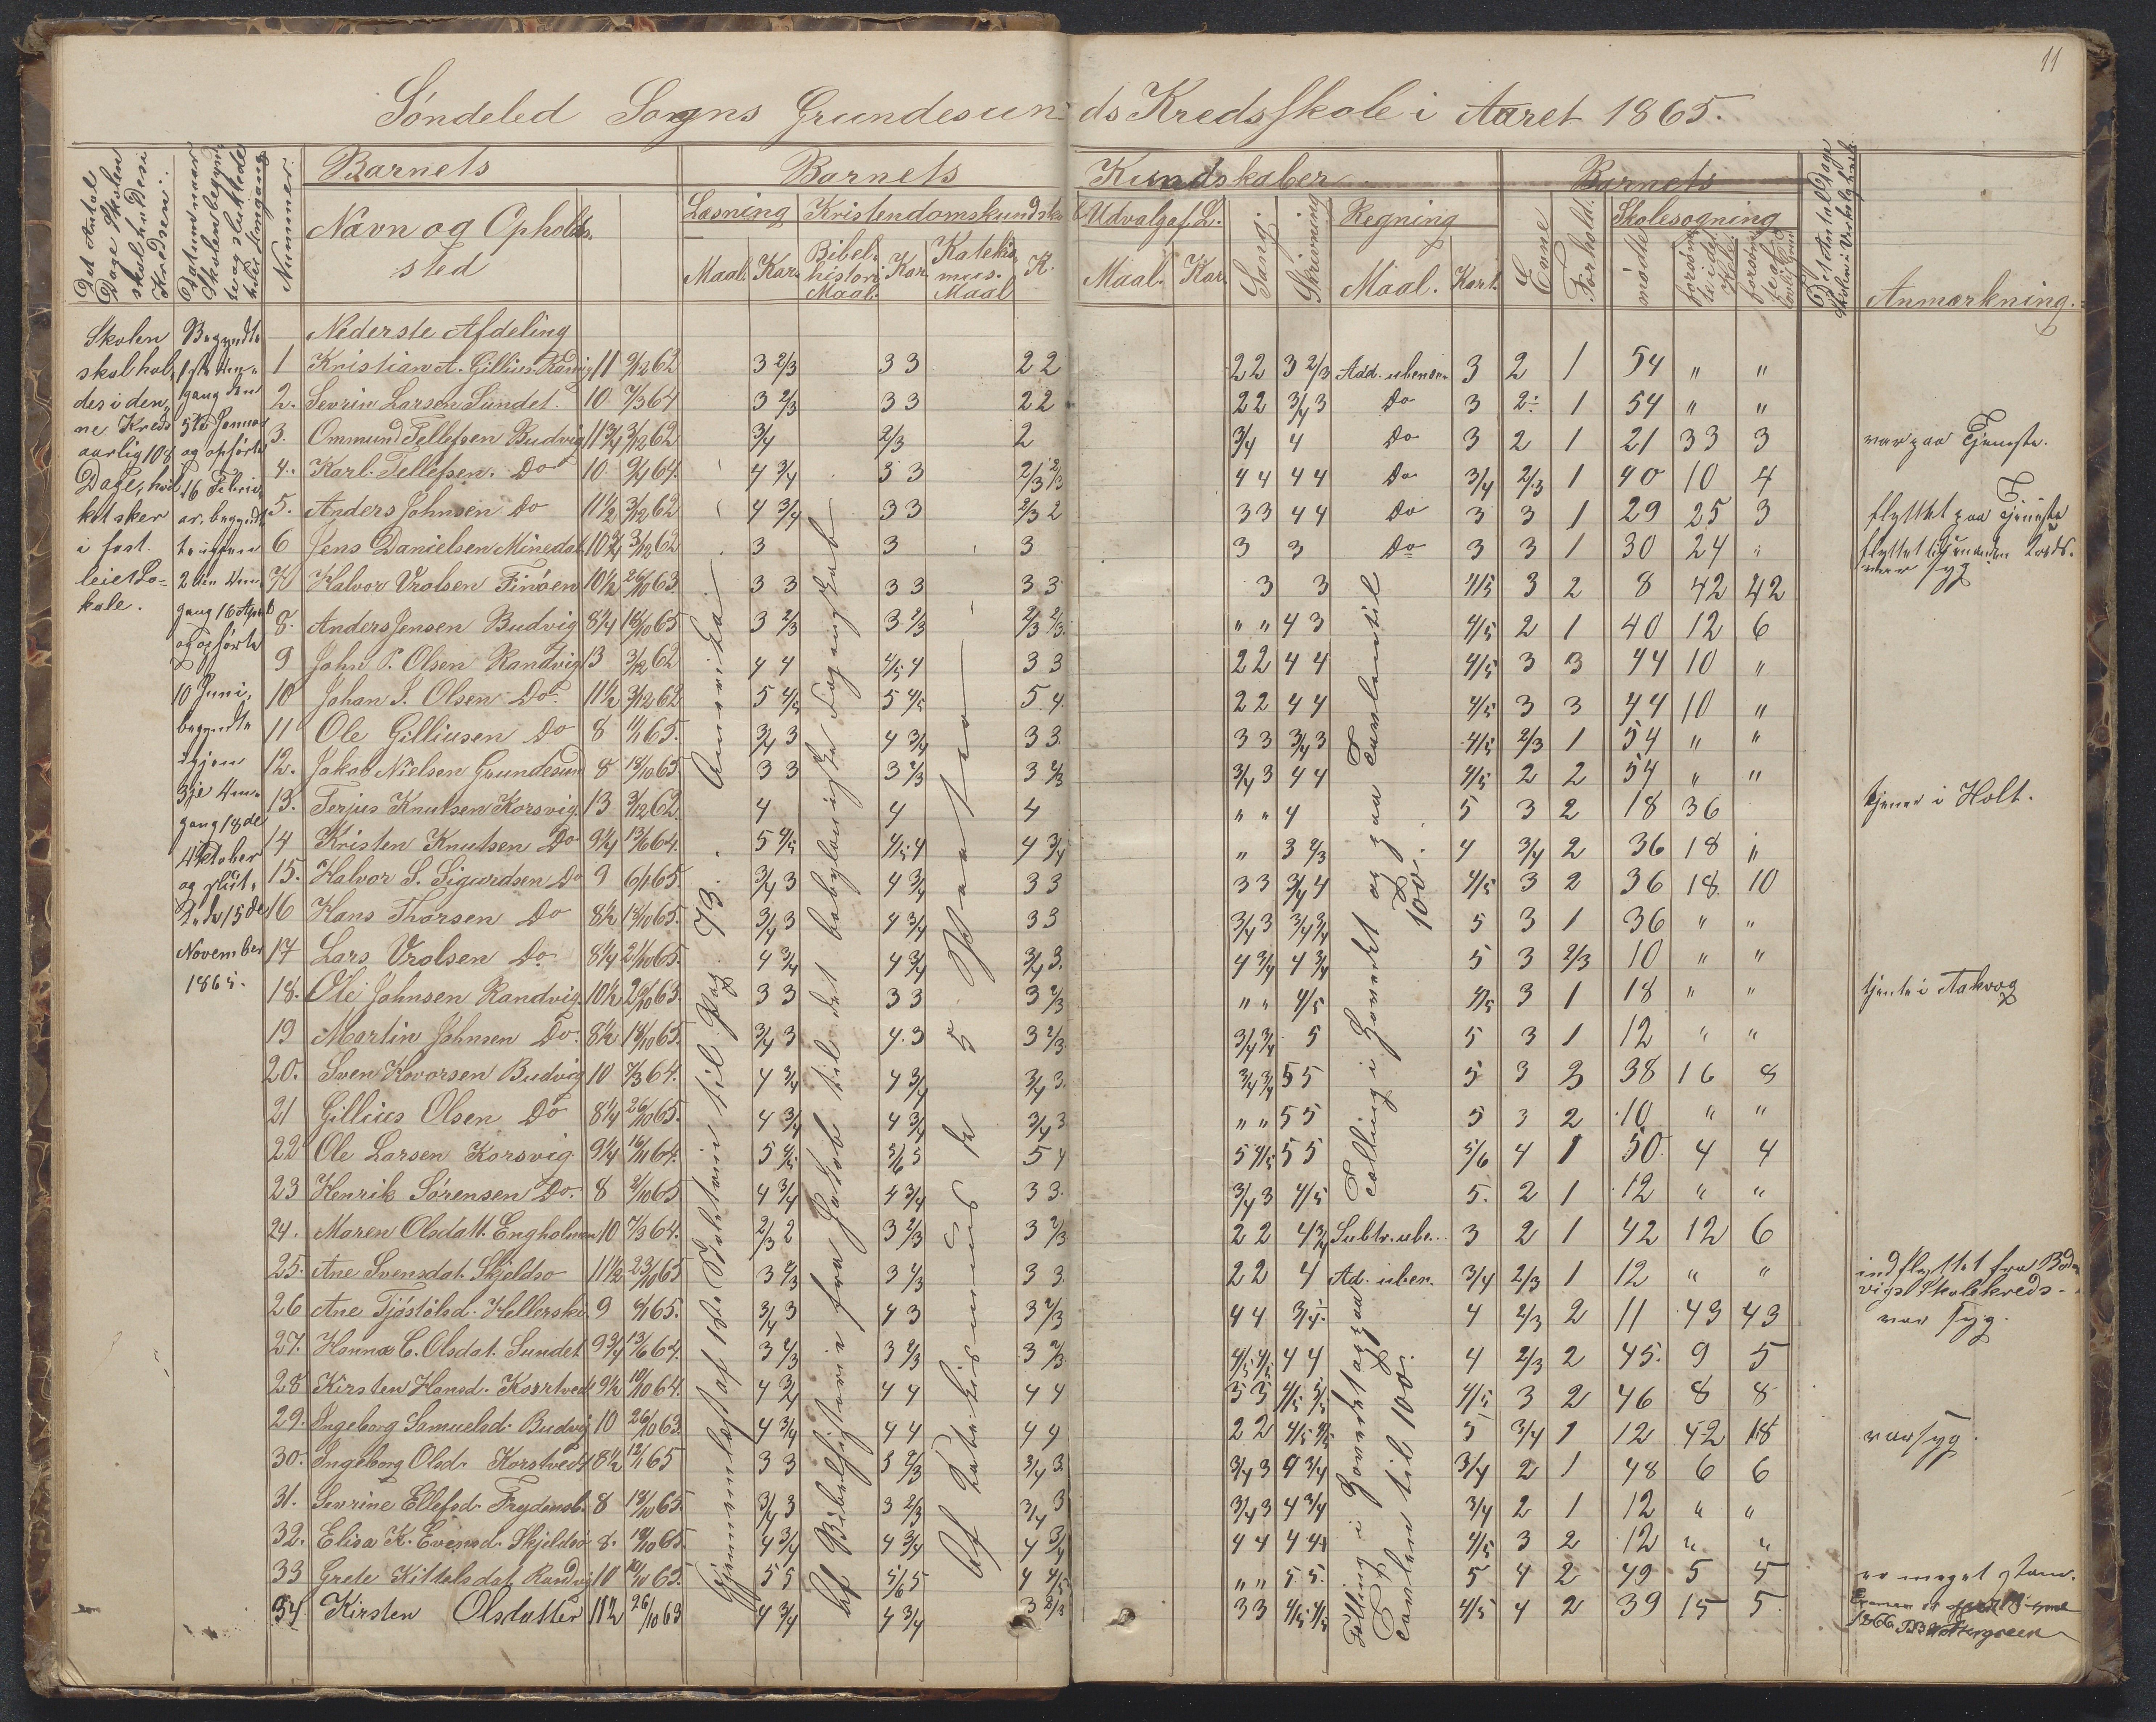 11
Søndeled Sogns Grundesunds Kredsskole i Aaret 1865.
Det Antal Dage Skolen skal holdes i Kredsen.
Datum naar Skolen begyndte og sluttede hver Omgang
Nummer.
Barnets
Navn og Opholdssted
Barnets Kundskaber
Læsning Kristendomskundskab Udvalg af L. Sang. Skrivning Regning
Maal. Kar. Bibelhistorie Maal. Kar. Katekismus. Maal K. Maal. Kar. Maal. Kart.
Barnets
Evne Forhold. Skolesøgning
mødte forsømte i det Hele
Anmærkning.
Skolen skal holdes i denne Kreds aarlig 108 Dage, hvilket sker i fast leiet Lokale.
Begyndte 1ste Omgang den 5te Januar og ophørte 16 Februar, begyndte igjen 2den Omgang 16 April og ophørte 10 Juni, begyndte igjen 3je Omgang 18de Oktober og slut. 15de November 1865.
Nederste Afdeling
1 Kristian A. Gilliusen Randvig 11 9/12 62 3 2/3 3 3 2 2 2 2 3 2/3 Add. ubenævn 3 2 1 54 " "
2. Sevrin Larsen Sundet. 10 7/3 64 3 2/3 3 3 2 2 2 2 3/4 3 Do 3 2 1 54 " "
3. Ommund Tellefsen Budvig 11 3/4 3/12 62 3/4 2/3 2 3/4 4 Do 3 2 1 21 33 3 var paa Tjeneste.
4. Karl Tellefsen. Do 10 9/4 64. 4 3/4 3 3 2/3 2/3 4 4 4 4 Do 3/4 2/3 1 40 10 4
5. Anders Johnsen Do 11 1/2 3/12 62 4 3/4 3 3 2/3 2 3 3 4 4 Do 3 3 1 29 25 3 flyttet paa Tjeneste
6 Jens Danielsen Minedal 10 3/4 3/12 62 3 3 3 3 3 Do 3 3 1 30 24 "
7 Halvor Vrolsen Finøen 10 1/2 26/10 63. 3 3 3 3 3 3 3 3 4/5 3 2 8 42 42 var syg
8. Anders Jensen Budvig 8 1/4 18/10 65 3 2/3 3 2/3 2/3 2/3 " " 4 3 4/5 2 1 40 12 6
9 John P. Olsen Randvig 13 3/12 62 4 4 4/5 4 3 3 2 2 4 4 4/5 3 3 44 10 "
10 Johan J. Olsen Do. 11 1/2 3/12 62 5 4/5 5 4/5 5. 4. 2 2 4 4 4/5 3 3 44 10 "
11 Ole Gilliusen Do 8 11/1 65. 3/4 3 4 3/4 3 3. 3 3 3/4 3 4/5 2/3 1 54 " "
12. Jakob Nielsen Grundesund 8 18/10 65 3 3 3 2/3 3 2/3 3/4 3 4 4 4/5 2 2 54 " "
13. Terjus Knutsen Korsvig. 13 3/12 62. 4 4 4 " " 4 5 3 2 18 36 tjener i Holt.
14 Kristen Knutsen Do 9 1/4 13/6 64. 5 4/5 4/5 4 4 3/4 " 3 2/3 4 3/4 2 36 18 "
15. Halvor S. Sigurdsen Do 9 6/1 65. 3/4 3 4 3/4 3 3 3 3 3/4 4 4/5 3 2 36 18 10
16 Hans Thorsen Do 8 1/2 18/10 65. 3/4 3 4 3/4 3 3 3/4 3 3/4 3/4 5 3 1 36 " "
17 Lars Vrolsen Do 8 1/4 21/10 65. 4 3/4 4 3/4 3/4 3. 4 3/4 4 3/4 5 3 2/3 10 " "
18. Ole Johnsen Randvig. 10 1/2 26/10 63. 3 3 3 3 3 2/3 " " 4/5 4/5 3 1 18 " " tjente i Aakvog
19 Martin Johnsen Do. 8 1/2 18/10 65. 3/4 3 4. 3 3 2/3 3/4 3/4 5 5 3 1 12 " "
20. Sven Hovorsen Budvig 10 7/3 64. 4 3/4 4 3/4 3/4 3. 3/4 3/4 5 5 5 3 3 38 16 8
21 Gillius Olsen Do 8 1/4 26/10 65. 4 3/4 4 3/4 3/4 3 " " 5 5 5 3 2 10 " "
22 Ole Larsen Korsvig 9 1/4 16/11 64. 5 4/5 5/6 5 5 4 5 4/5 5 5 5/6 4 1 50 4 4
23 Henrik Sørensen Do. 8 2/10 65 4 3/4 4 3/4 3 3. 3/4 3 4/5 5. 2 1 12 " "
24. Maren Olsdatt. Engholmen 10 7/3 64. 2/3 2 3 2/3 3 2/3 2 2 4 3/4 Subtr. ube. 3 2 1 42 12 6
25. Ane Svensdat. Skjeldsø 11 1/2 23/10 65 3 2/3 3 2/3 3 3. 2 2 4 Ad. uben. 3/4 2/3 1 12 " " indflyttet fra Bodvigs Skolekreds.
26 Ane Tjøstølsd. 9 6/1 65. 3/4 3 4 3 3 2/3 4 4 3/4 4 2/3 2 11 43 43 var syg.
27. Hanna C. Olsdat. Sundet 9 3/4 13/6 64. 3 2/3 3 2/3 3 2/3 4/5 4/5 4 4 4 2/3 2 45. 9 5
28 Kirsten Hansd. 9 1/2 10/10 64. 4 3/4 4 4 4 4 3 3 4/5 4/5 3 2 46 8 8
29. Ingeborg Samuelsd. Budvig 10 26/10 63. 4 3/4 4 4 4 4 2 2 4/5 4/5 5 3/4 1 12 42 18 var syg.
30. Ingeborg Olsd. Korstvedt 8 1/2 12/1 65 3 3 3 2/3 3/4 3. 3/4 3 4 3/4 3/4 2 1 48 6 6
31. Sevrine Ellefsd. Frydensb. 8 18/10 65. 3/4 3 3 2/3 3/4 3 3/4 3 4 3/4 3/4 2 1 12 " "
32. Elisa K. Evensd. Skjeldsø 8. 19/10 65. 4 3/4 4 3/4 4 3/4 4 4 4 4/5 4/5 3 2 12 " "
33 Grete Kittelsdat. Randvig 10 10/10 63. 5 5 5/6 5 4 4/5 " " 5 5. 5 4 2 49 5 5 er meget
34. Kirsten Olsdatter 11 1/2 26/10 63 4 3/4 4 3/4 3 2/3 3 3 4/5 4/5 4/5 4 2 39 15 5.
Gjennemlæst af 1ste Pag. 73. Amerika.
Af Bibelhistorie fra Jakob til det babyloniske Fangenskab
Af Katekismus de 5 Parter
Tælling i Hovedet og paa Tavlen til 100.
Tælling i Hovedet og paa Tavlen til 100.
1866